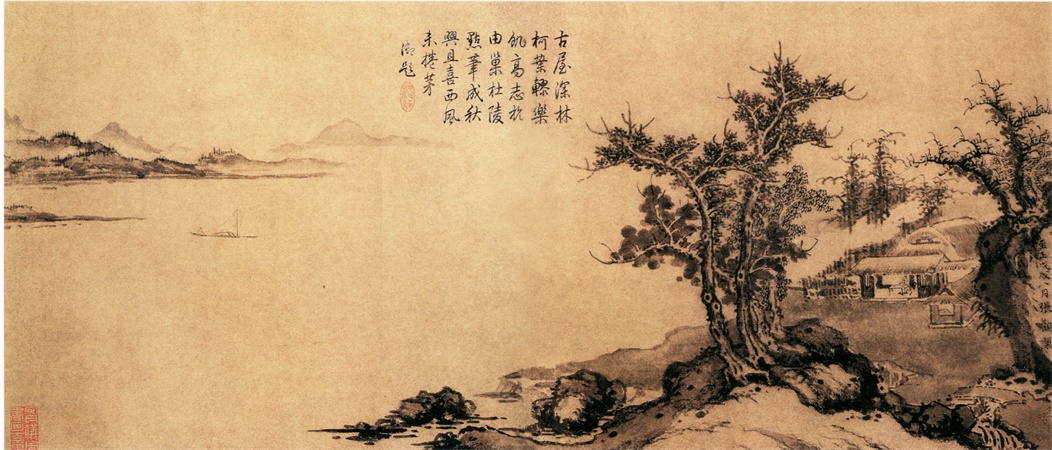 古屋深林
柯葉轇樂
飢高志於
由巢杜陵
點筆成秋
興且喜西風
未捲茅
御題